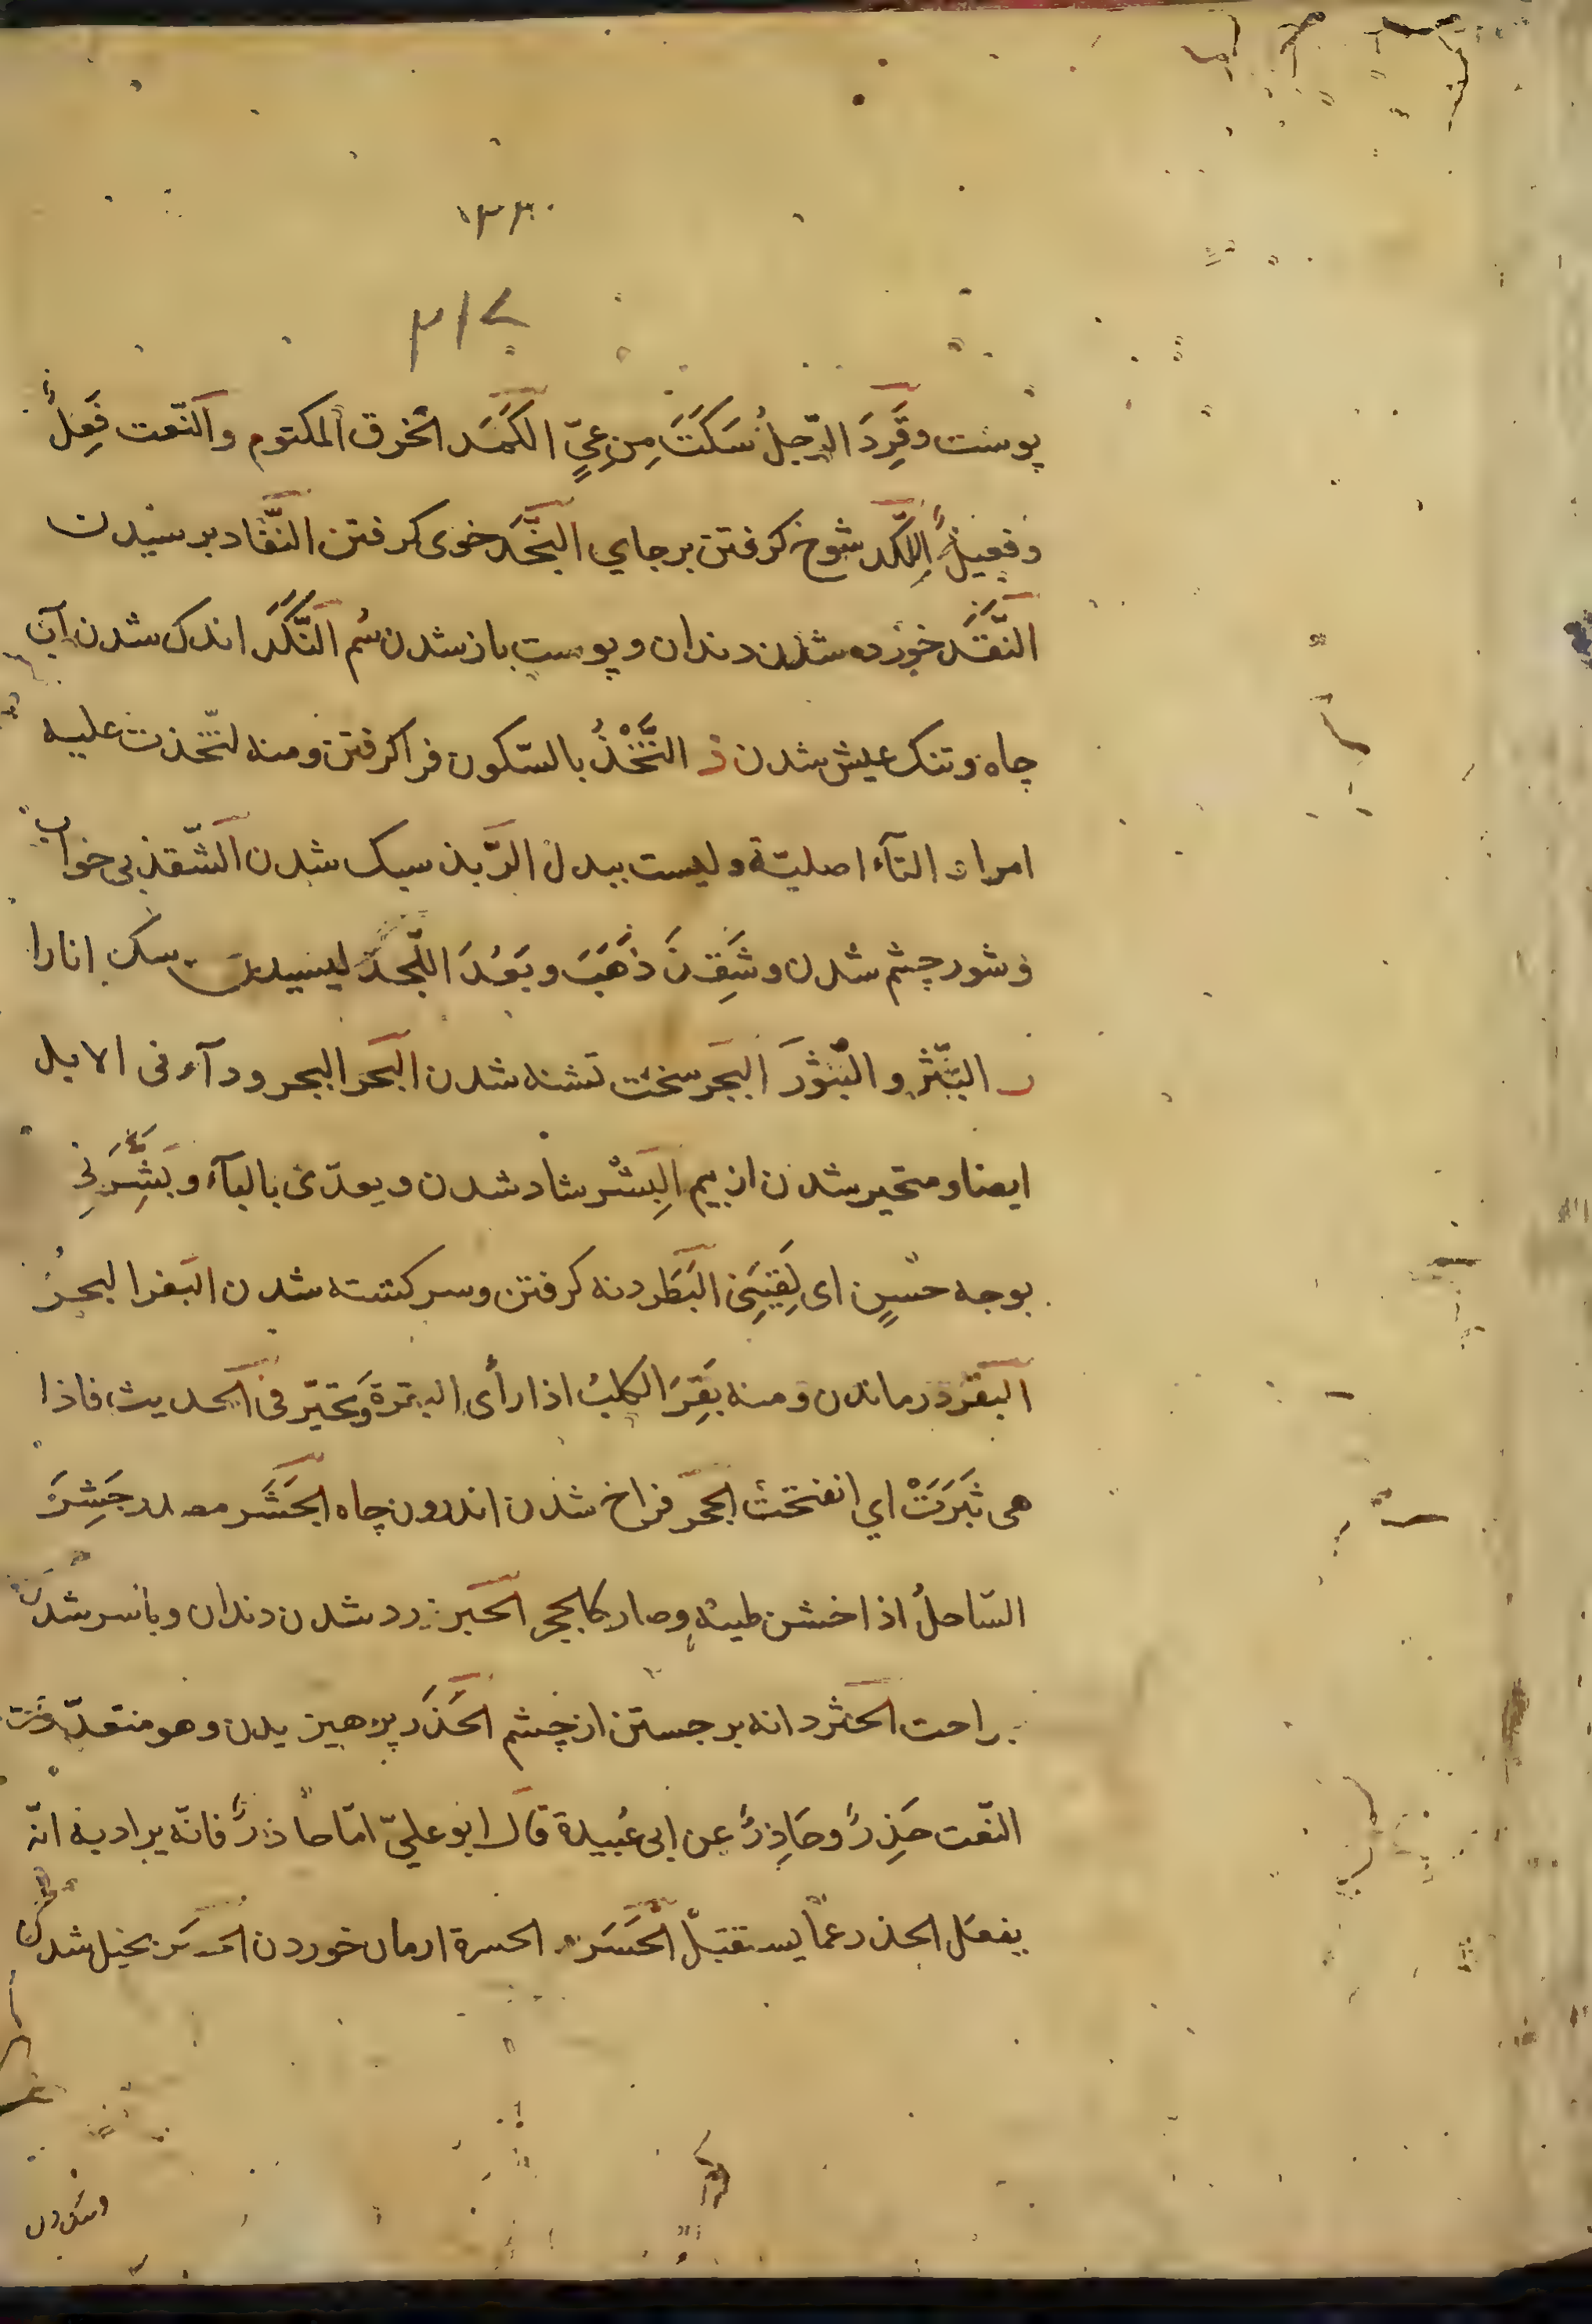 ۱۳۳۰
۳۱۷
پوست وقَرِدَ الرّجلُ سَكَتَ مِن عِيٍّ الكَمَد الحزن المكتوم والنّعت فَعِلٌ
وفعيلٌ اللَّكَد شوخ كرفتن بر جاي النَّجَد خوى كرفتن النَّفاد برسيدن
النَّقَد خورده شدن دندان و پوست باز شدن سُم النَّكَد اندك شدن آب
چاه و تنك عيش شدن ذ التَّخْذُ بالسّكون فراكرفتن ومنه لتّخذت عليه
اجرا التآء اصليّة وليست ببدل الرَّبذ سبك شدن الشّقذ بى خواب
و شور چشم شدن وشَقِذَ ذَهَبَ وبَعُدَ اللّجذ ليسيدن سك انارا
ر البَثْر والبُثُورَ البَجَر سخت تشنه شدن البَحَر البجر ودآء فى الابل
ايضا و متحير شدن از بيم البِشْر شاد شدن ويعدّى بالبآء وبَشِرَنِي
بوجه حسنٍ اى لِقَيَنِى البَطَر دنه كرفتن و سركشته شدن البَغر البحرُ
البَقَر درماندن ومنه بَقِرَ الكلبُ اذا رأى البقرة وتَحَيّر فى الحديث فاذا
هى ثَبَرَتْ اي انفتحت الجَحَر فراخ شدن اندرون چاه الجَشَر مصدر جَشِرَ
السّاحلُ اذا خشن طينه وصار كالحجر الحَبَر زرد شدن دندان و باسر شدن
جراحت الحَثَر دانه برجستن از چشم الحَذَر پرهيزيدن وهو متعدّ
النّعت حَذِرٌ وحَاذِرٌ عن ابى عُبيدة قال ابو عليّ امّا حاذرٌ فانّه يراد به انّه
يفعَل الحذر عمّا يستقبل الحَسَر و الحسرة ارمان خوردن الحَصَر بخيل شدن